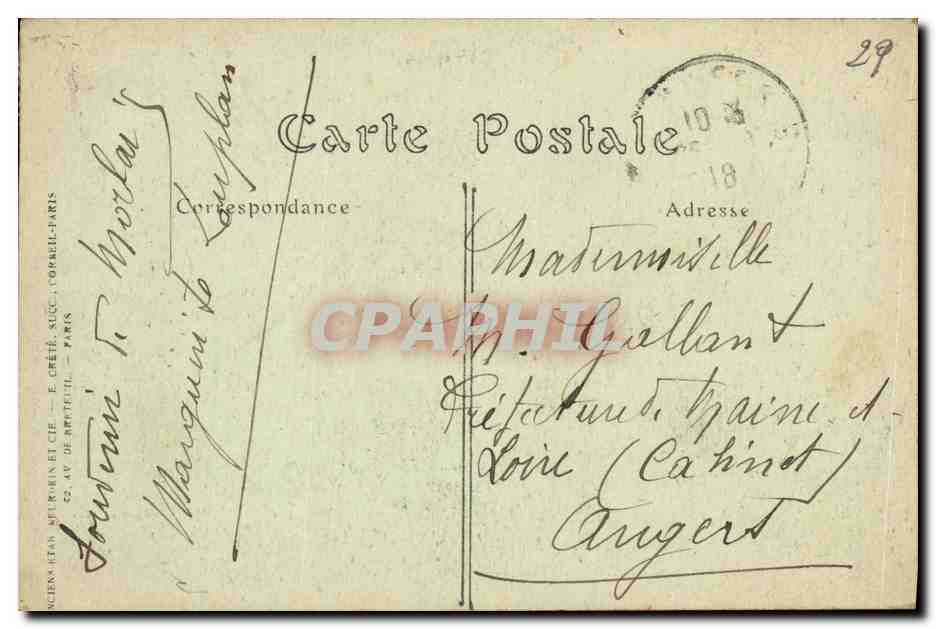 29
Carte Postale
Correspondance
Adresse
10
18
Souvenir de Morlaix
Marguerite
Mademoiselle
M. Gallant
Préfecture de Maine-et-
Loire (Cabinet)
Angers
CPAPHIL
ANCIENS ETAB. NEURDEIN ET CIE. — E. CRÉTÉ, SUCC., CORBEIL-PARIS
52, AV. DE BRETEUIL. — PARIS